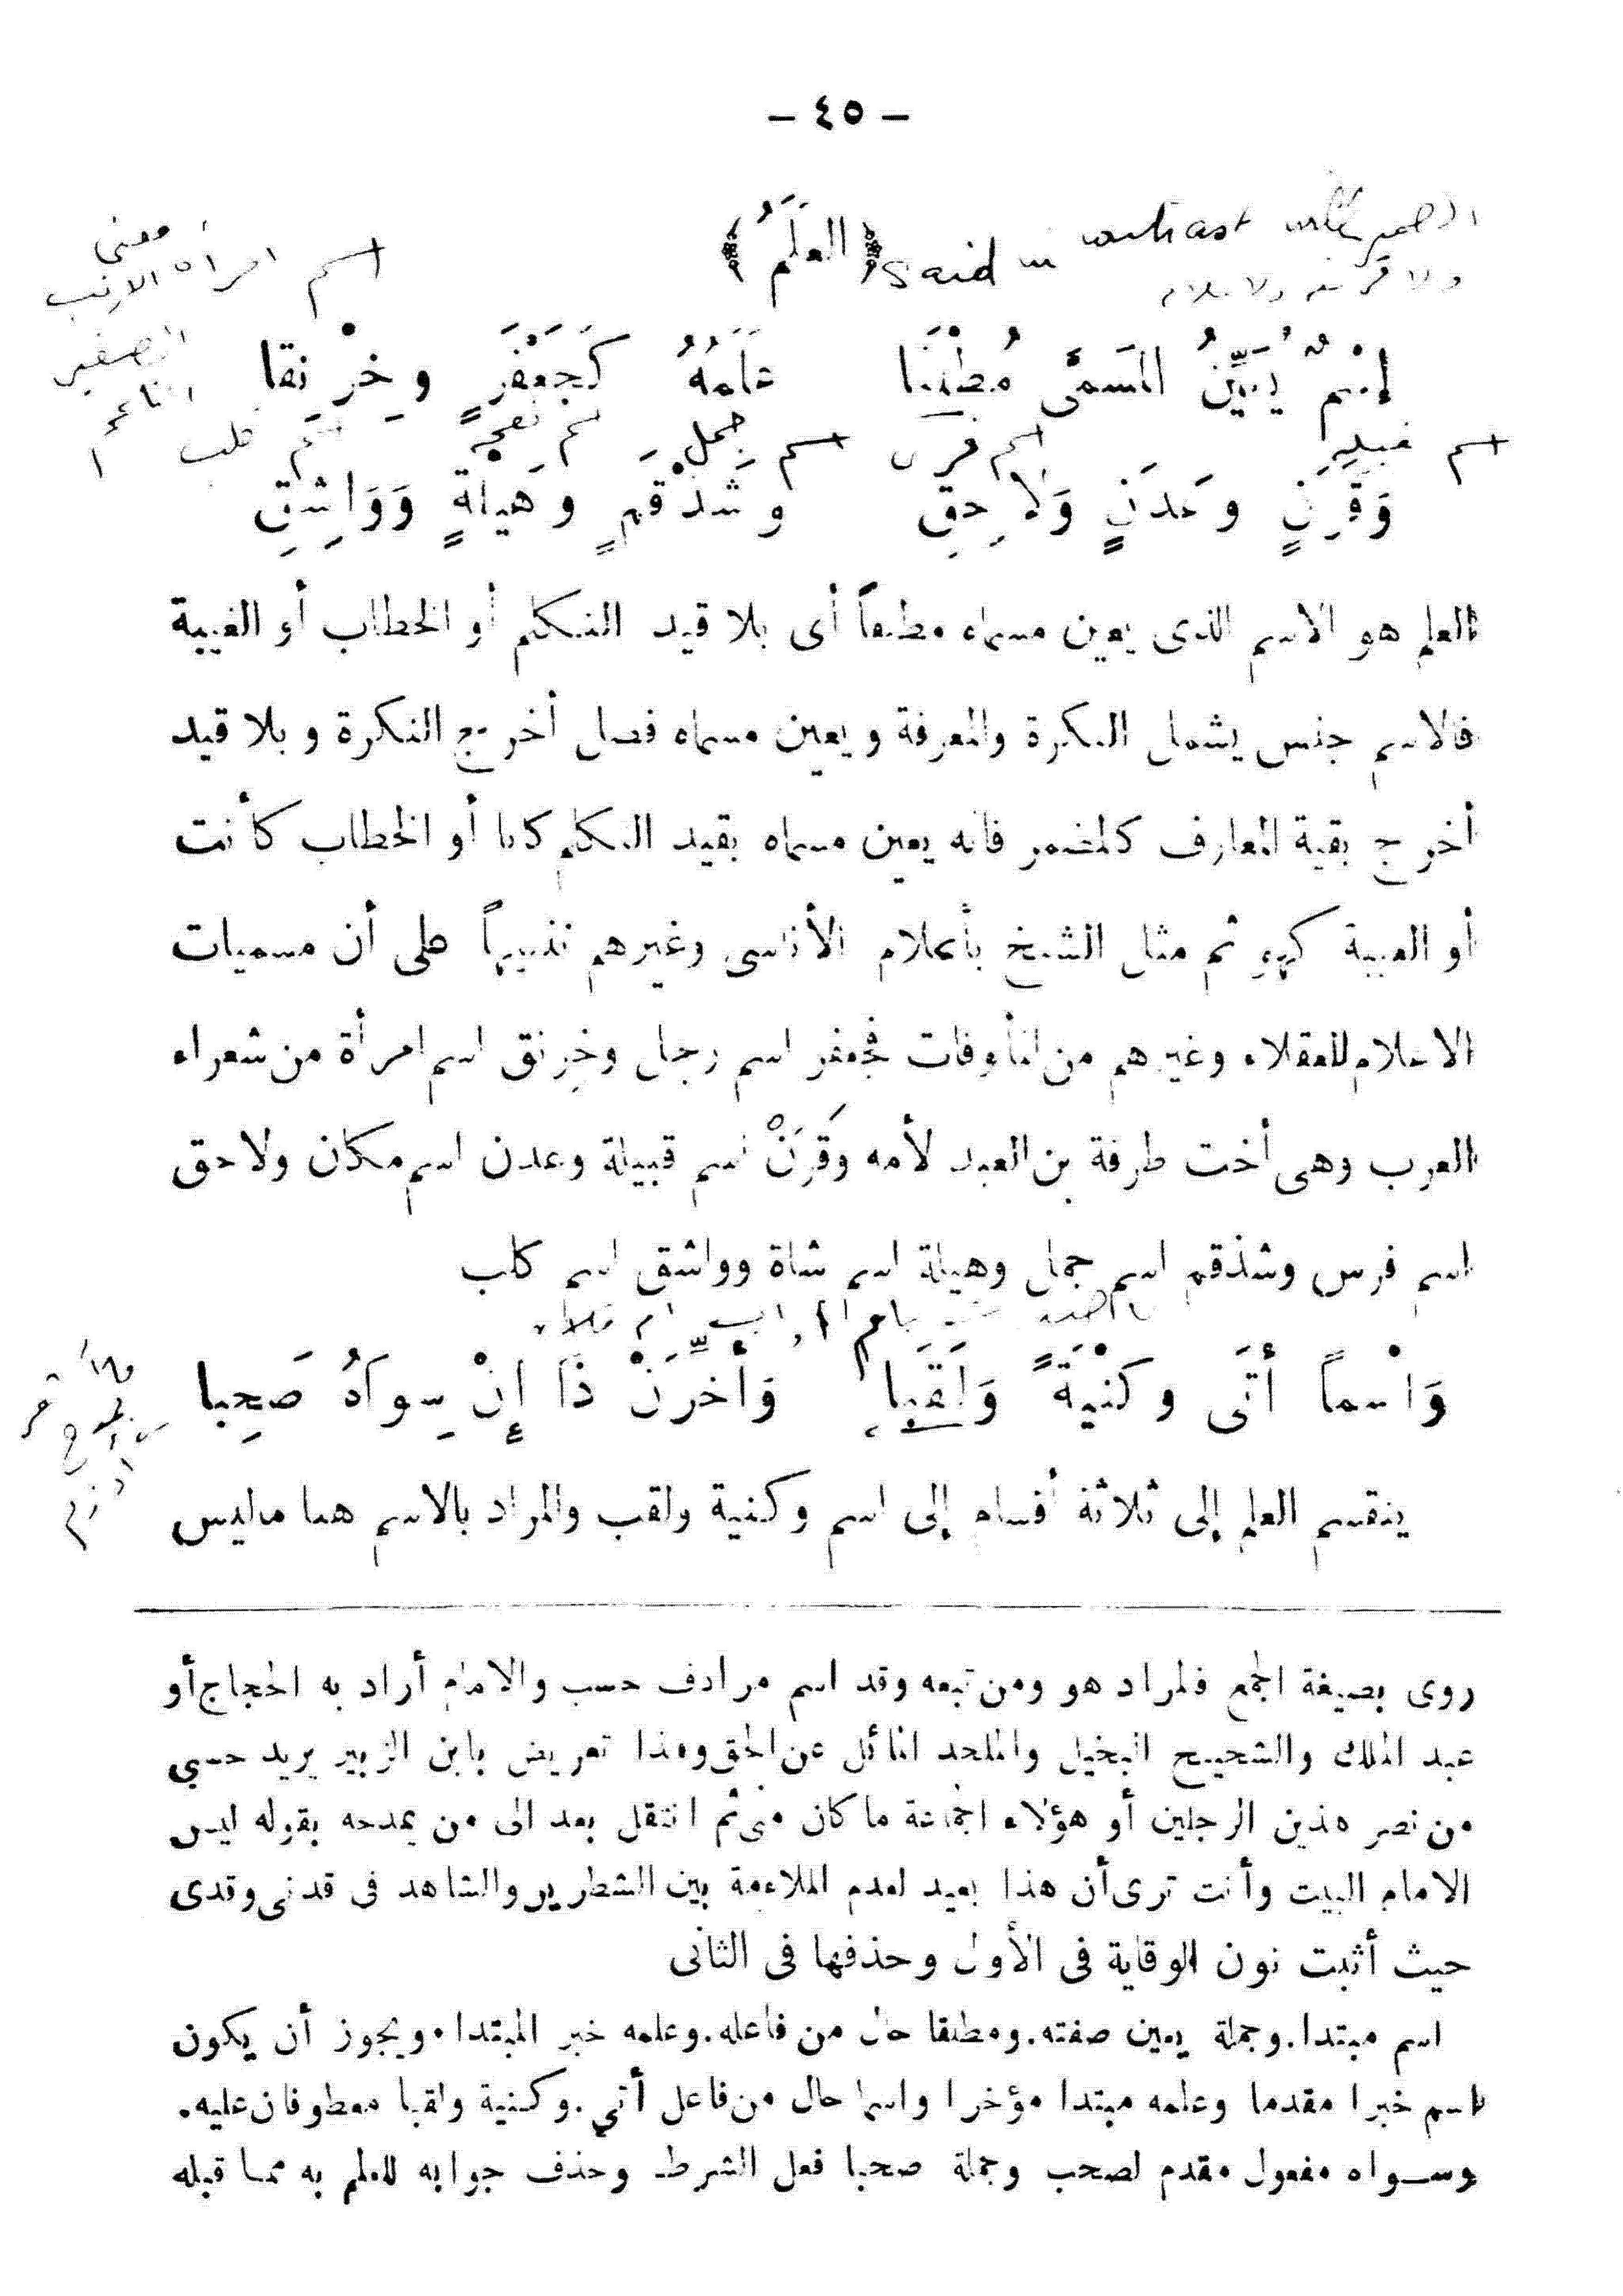 — ٤٥ —
﴿ العَلَمُ ﴾ Said in contrast with
اسم امرأة الارنب
معنى
إسْمٌ يُعَيِّنُ المُسَمَّى مُطْلَقَا عَلَمُهُ كَجَعْفَرٍ وخِرْنِقَا
اسم قبيلة اسم فرس اسم جمل اسم نعجة اسم كلب
وَقَرَنٍ وعَدَنٍ وَلاَحِقِ وشَذْقَمٍ وهَيْلَةٍ وَوَاشِقِ
العلم هو الاسم الذى يعين مسماه مطلقاً أى بلا قيد التكلم أو الخطاب أو الغيبة
فالاسم جنس يشمل النكرة والمعرفة ويعين مسماه فصل أخرج النكرة وبلا قيد
أخرج بقية المعارف كالمضمر فانه يعين مسماه بقيد التكلم كأنا أو الخطاب كأنت
أو الغيبة كهو ثم مثل الشيخ بأعلام الأناسى وغيرهم تنبيهاً على أن مسميات
الاعلام للعقلاء وغيرهم من المألوفات فجعفر اسم رجل وخرنق اسم امرأة من شعراء
العرب وهى أخت طرفة بن العبد لأمه وَقَرَنْ اسم قبيلة وعدن اسم مكان ولاحق
اسم فرس وشذقم اسم جمل وهيلة اسم شاة وواشق اسم كلب
وَاسْماً أتَى وكُنْيَةً وَلَقَبَا وَأخِّرَنْ ذَا إنْ سِوَاهُ صَحِبا
ينقسم العلم إلى ثلاثة أقسام إلى اسم وكنية ولقب والمراد بالاسم هنا ماليس
روى بصيغة الجمع فالمراد هو ومن تبعه وقد اسم مرادف حسب والامام أراد به الحجاج أو
عبد الملك والشحيح البخيل والملحد المائل عن الحق وهذا تعريض بابن الزبير يريد حسبي
من نصر هذين الرجلين أو هؤلاء الجماعة ما كان منى ثم انتقل بعد الى من يمدحه بقوله ليس
الامام البيت وأنت ترى أن هذا بعيد لعدم الملاءمة بين الشطرين والشاهد فى قدنى وقدى
حيث أثبت نون الوقاية فى الأول وحذفها فى الثانى
اسم مبتدا. وجملة يعين صفته. ومطلقا حال من فاعله. وعلمه خبر المبتدا. ويجوز أن يكون
اسم خبرا مقدما وعلمه مبتدا مؤخرا واسما حال من فاعل أتي. وكنية ولقبا معطوفان عليه.
وسواه مفعول مقدم لصحب وجملة صحبا فعل الشرط وحذف جوابه للعلم به مما قبله